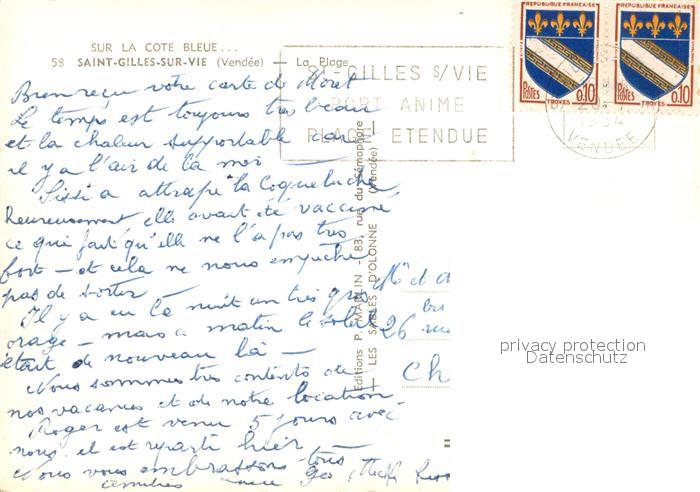 SUR LA COTE BLEUE...
58 SAINT-GILLES-SUR-VIE (Vendée) — La Plage
Bien reçu votre carte de
Le temps est toujours très beau
et la chaleur supportable car
il y a l'air de la mer
Sissi a attrapé la Coqueluche
heureusement elle avait été vaccinée
ce qui fait qu'elle ne l'a pas très
fort — et cela ne nous empêche
pas de sortir
Il y a eu la nuit un très gros
orage — mais ce matin le soleil
était de nouveau là —
Nous sommes très contents de
nos vacances et de notre location
Roger est venu 5 jours avec
nous il est reparti hier —
Nous vous embrassons tous
ST-GILLES S/VIE
PORT ANIME
PLAGE ETENDUE
REPUBLIQUE FRANÇAISE
POSTES 0,10
TROYES
REPUBLIQUE FRANÇAISE
POSTES 0,10
TROYES
VENDEE
Editions P. MARLIN - 83, rue du Sémaphore
LES SABLES D'OLONNE (Vendée)
26 rue
Ch
privacy protection
Datenschutz